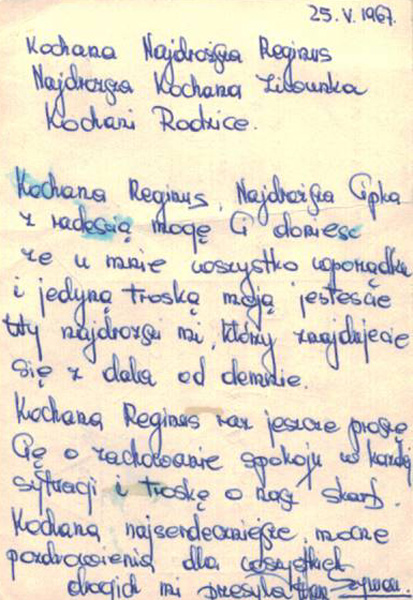 25.V.1967.
Kochana Najdroższa Reginus
Najdroższa Kochana Lilounka
Kochani Rodzice.
Kochana Reginus, Najdroższa Cipka
z radością mogę Ci donieść
że u mnie wszystko wporządku
i jedyną troską moją jesteście
Wy najdrożsi mi, którzy znajdujecie
się z dala od demnie.
Kochana Reginus raz jeszcze proszę
Cię o zachowanie spokoju w każdej
sytuacji i troskę o nasz skarb.
Kochana najserdeczniejsze, mocne
pozdrowienia dla wszystkich
drogich mi przesyła Szymon.